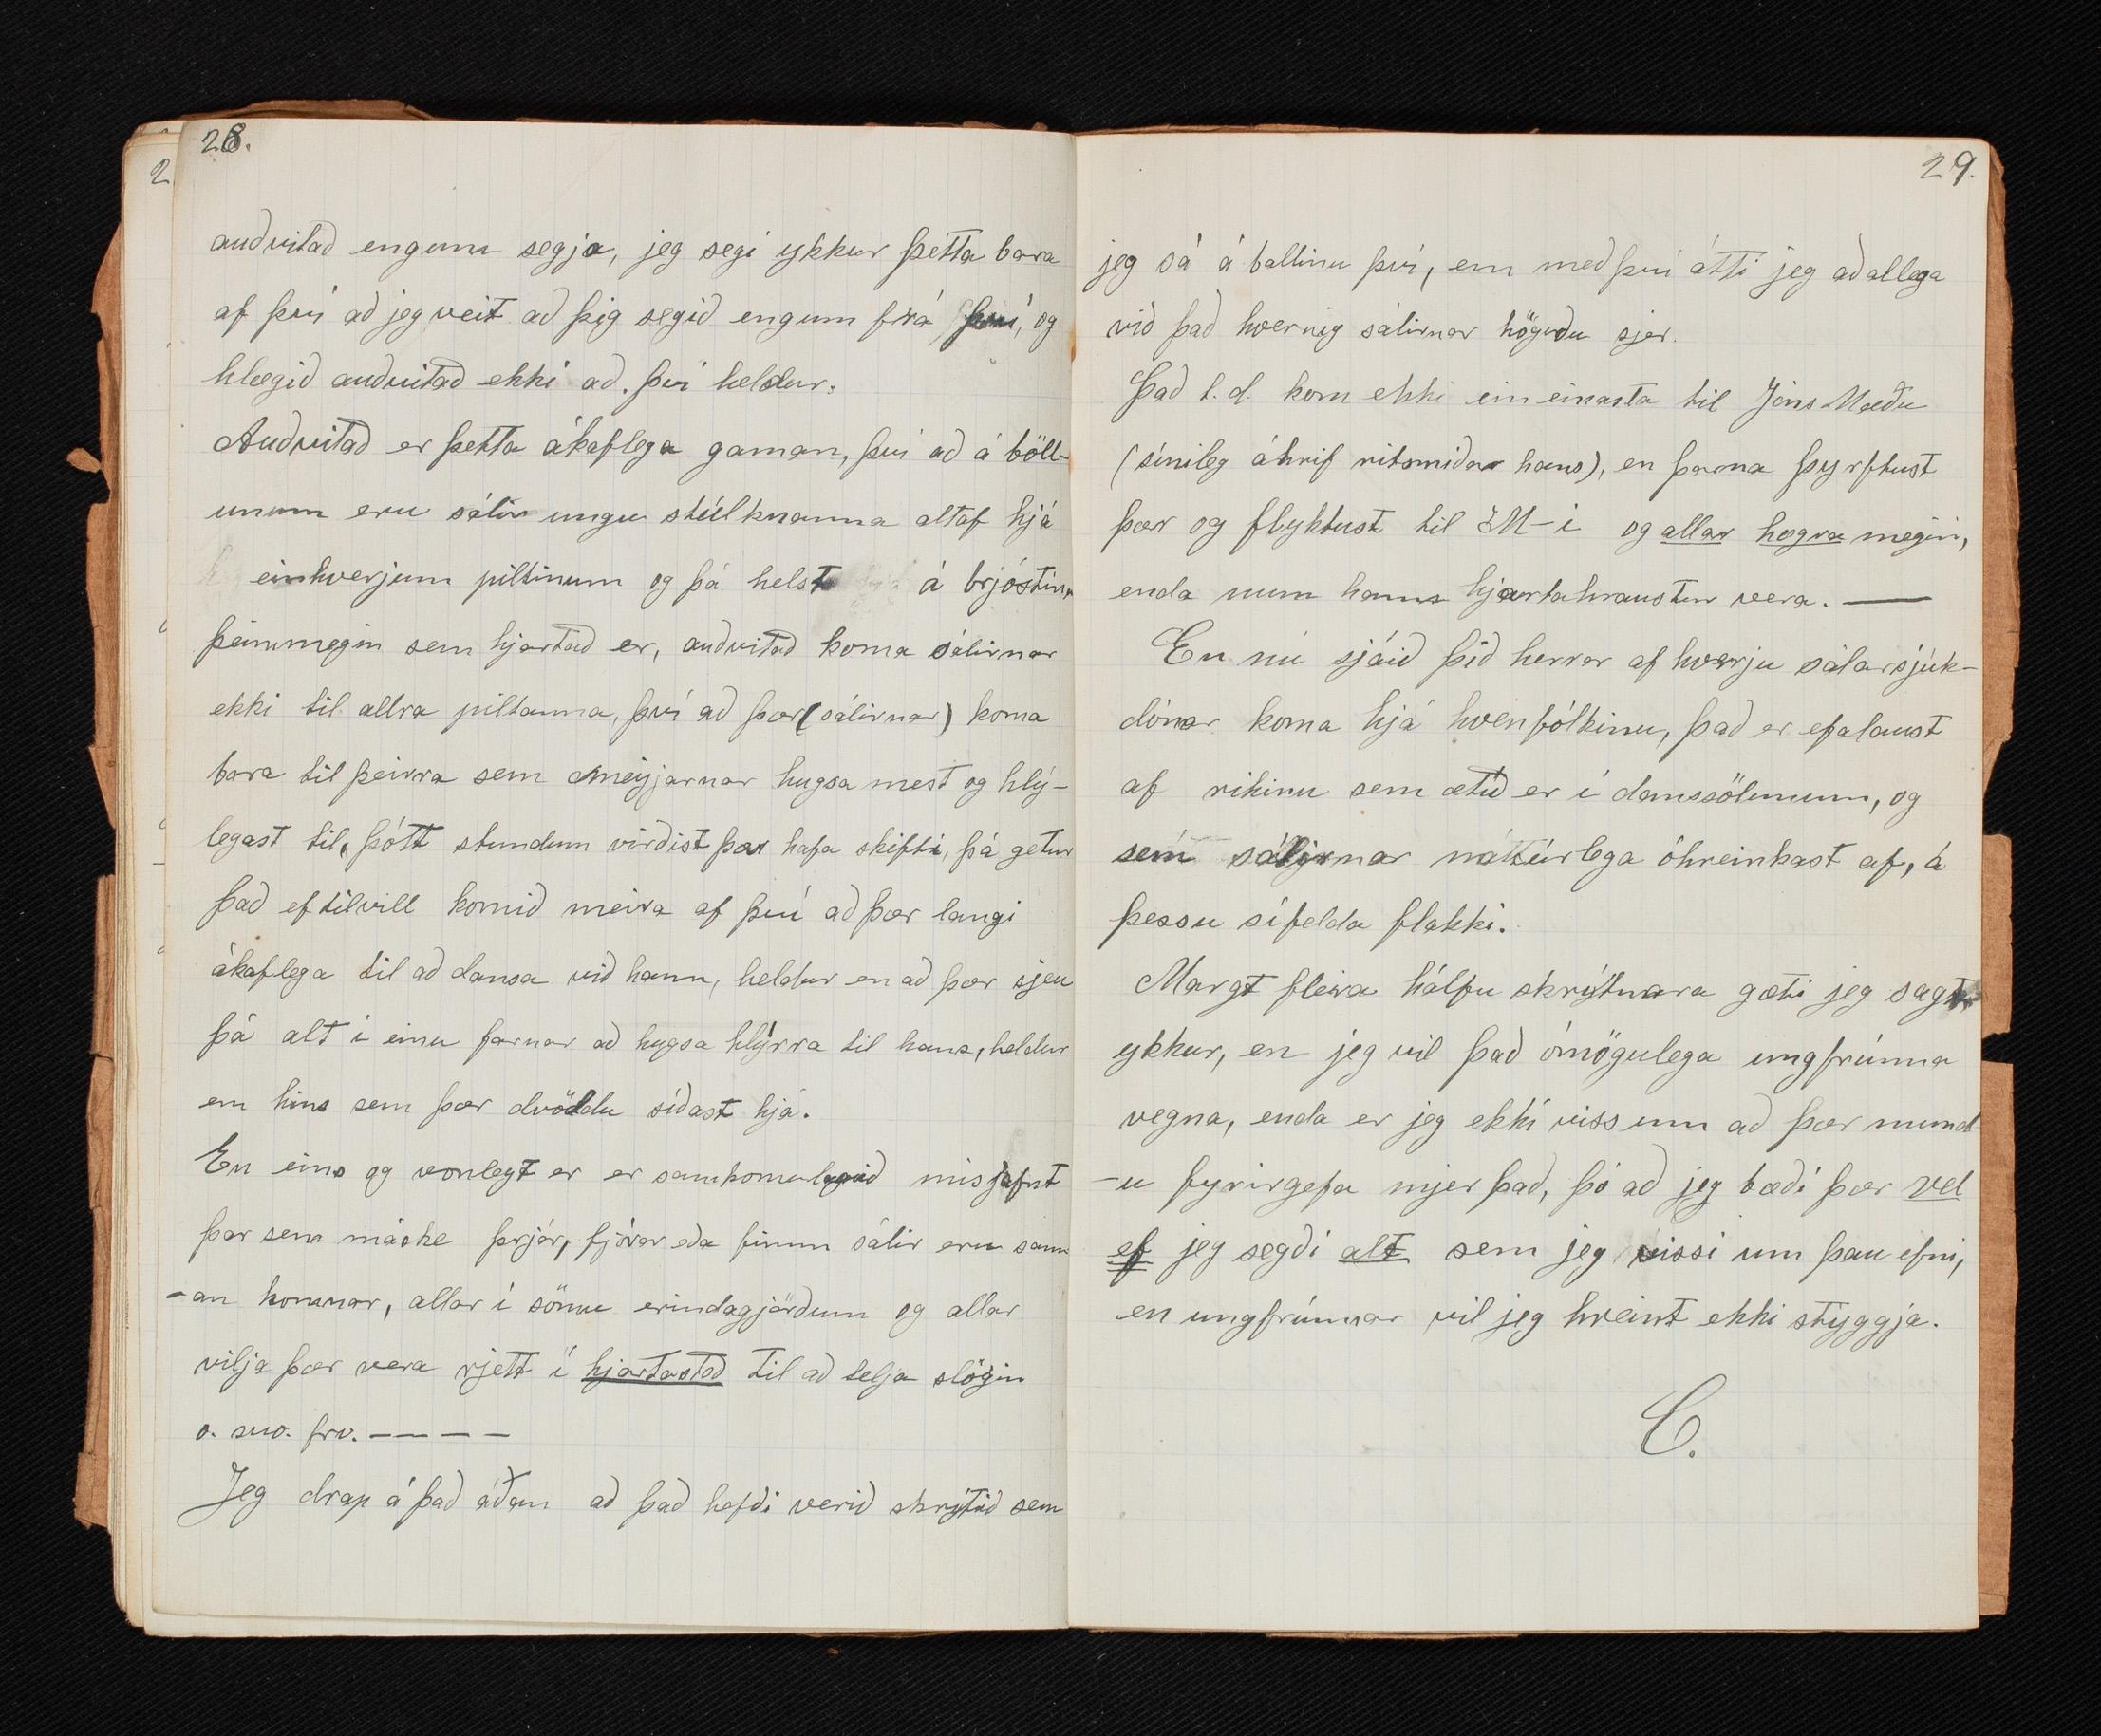 28.
auðvitað engum segja, jeg segi ykkur þetta bara
af því að jeg veit að þig segið engum frá því, og
hlægið auðvitað ekki að því heldur.
Auðvitað er þetta ákaflega gaman, því að á böll-
unum eru sálir ungu stúlknanna altaf hjá
einhverjum piltinum og þá helst á brjóstinu
þeimmegin sem hjartað er, auðvitað koma sálirnar
ekki til allra piltanna, því að þær (sálirnar) koma
bara til þeirra sem meyjarnar hugsa mest og hlý-
legast til, þótt stundum virðist þær hafa skifti, þá getur
það eftilvill komið meira af því að þær langi
ákaflega til að dansa við hann, heldur en að þær sjeu
þá alt í einu farnar að hugsa hlýrra til hans, heldur
en hins sem þær dvöldu síðast hjá.
En eins og vonlegt er er samkomulagið misjafnt
þar sem máske þrjár, fjórar eða fimm sálir eru sam
-an komnar, allar í sömu erindagjörðum og allar
vilja þær vera rjett í hjartastað til að telja slögin
o. svo. frv. — — — —
Jeg drap á það áðan að það hefði verið skrýtið sem
29.
jeg sá á ballinu því, em með því átti jeg aðallega
við það hvernig sálirnar höguðu sjer.
Það t.d. kom ekki ein einasta til Jóns Mæðu
(sínileg áhrif ritsmiðar hans), en þarna þyrftust
þær og flyktust til M-i og allar hægra megin,
enda mun hann hjartahraustur vera. —
En nú sjáið þið herrar af hverju sálarsjúk-
dómar koma hjá kvenfólkinu, það er efalaust
af rikinu sem ætíð er í danssölunum, og
sem sálirnar náttúrlega óhreinkast af, á
þessu sífelda flakki.
Margt fleira hálfu skrýtnara gæti jeg sagt
ykkur, en jeg vil það ómögulega ungfrúnna
vegna, enda er jeg ekki viss um að þær mund
-u fyrirgefa mjer það, þó að jeg bæði þær vel
ef jeg segði alt sem jeg vissi um þau efni,
en ungfrúnar vil jeg hreint ekki styggja.
C.